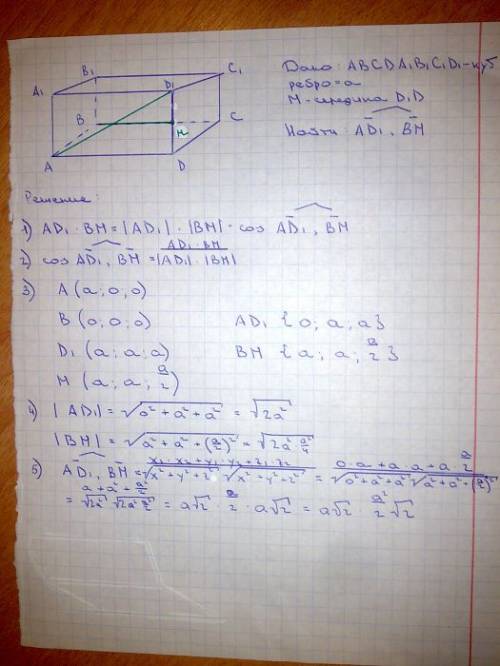 B₁ C₁
A₁ D₁
B M C
A D
Дано: ABCDA₁B₁C₁D₁ - куб
ребро = a
M - середина D₁D
Найти: AD₁, BM
Решение:
1) AD₁ · BM = |AD₁| · |BM| · cos AD₁, BM
2) cos AD₁, BM = AD₁ · BM / |AD₁| · |BM|
3) A (a; 0; 0)
B (0; 0; 0) AD₁ {0; a; a}
D₁ (a; a; a) BM {a; a; a/2}
M (a; a; a/2)
4) |AD₁| = √(0² + a² + a²) = √(2a²)
|BM| = √(a² + a² + (a/2)²) = √(2a² a²/4)
5) AD₁, BM = (x₁·x₂ + y₁·y₂ + z₁·z₂) / √(x² + y² + z²) · √(x² + y² + z²) = (0·a + a·a + a·a/2) / √(0² + a² + a²) √(a² + a² + (a/2)²)
= (a + a² + a²/2) / √(2a²) √(2a² a²/2) = a√2 · a/2 · a√2 = a√2 · a²/2 √2